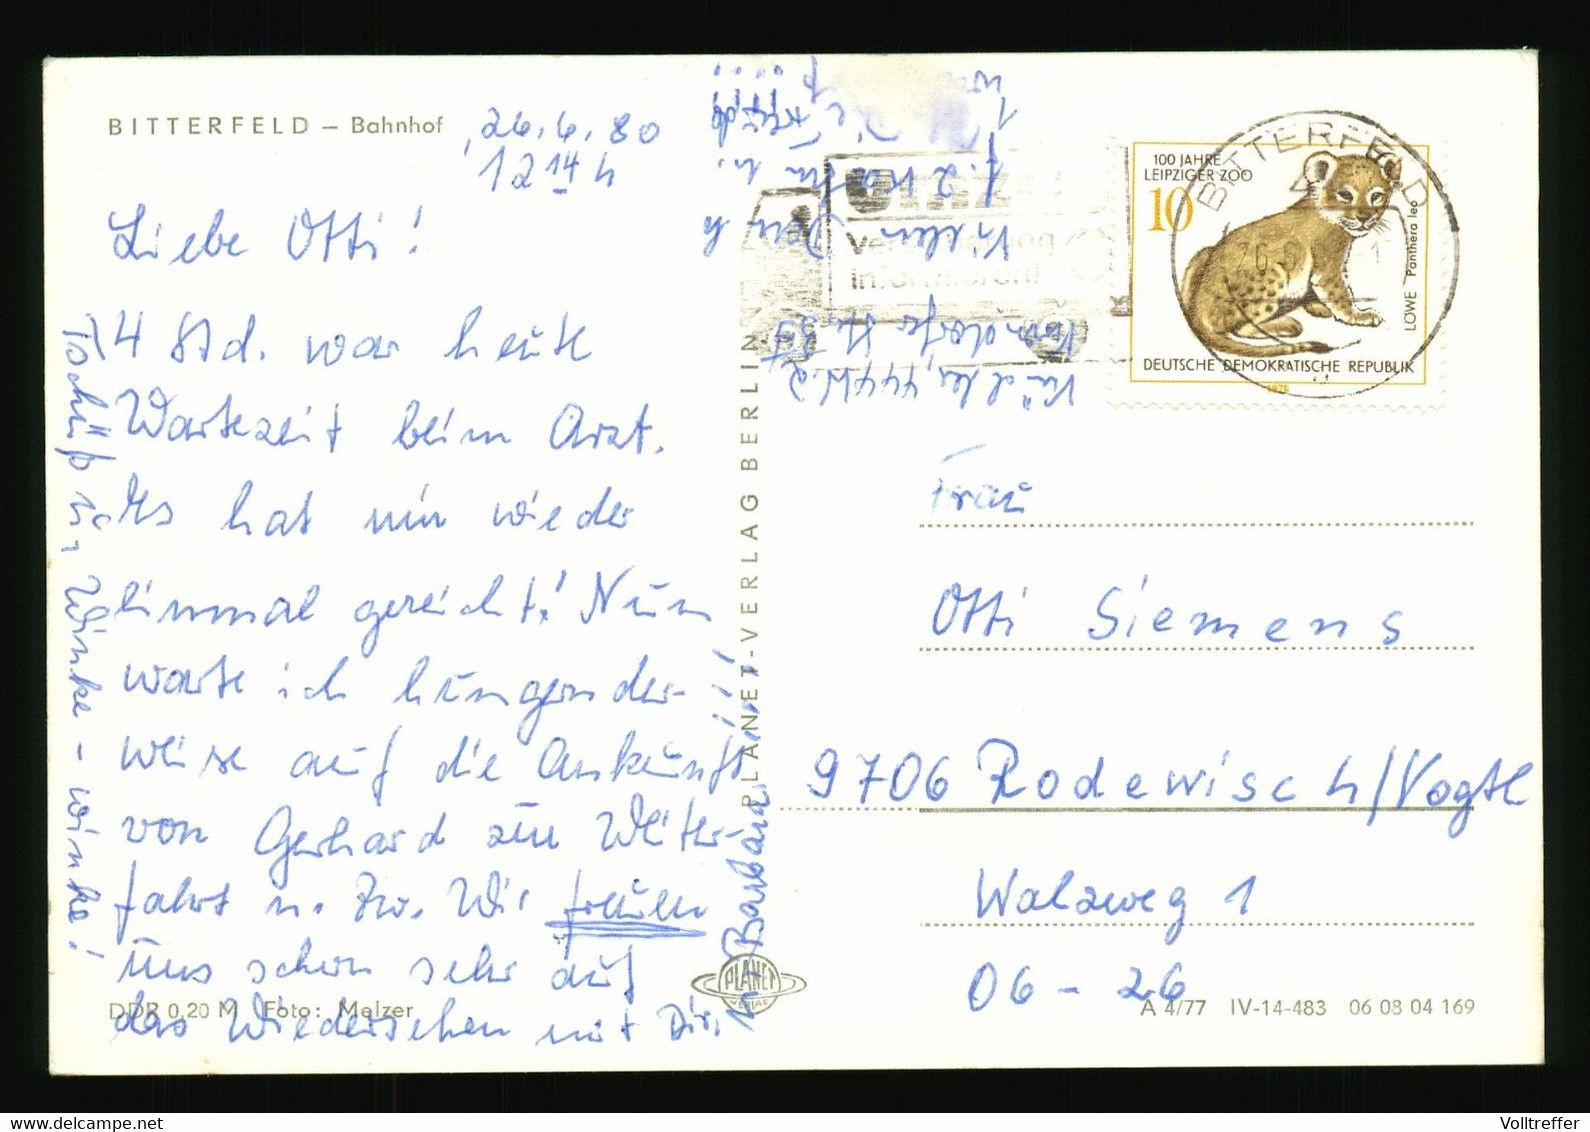 BITTERFELD – Bahnhof
26.6.80
12 14 h
Liebe Otti!
4 Std. war heute
Wartezeit beim Arzt.
Es hat mir wieder
einmal gereicht! Nun
warte ich hungernder-
weise auf die Ankunft
von Gerhard zur Weiter-
fahrt n. Zw. Wir freuen
uns schon sehr auf
das Wiedersehen mit Dir,
Barbara
Tschüß u, Winke – winke!
DDR 0,20 M Foto: Melzer
PLANET-VERLAG BERLIN
PLANET
VERLAG
100 JAHRE
LEIPZIGER ZOO
10
LÖWE Panthera leo
DEUTSCHE DEMOKRATISCHE REPUBLIK
1978
BITTERFELD
26.6.
informieren!
Frau
Otti Siemens
9706 Rodewisch/Vogtl
Walzweg 1
06 – 26
A 4/77 IV-14-483 06 08 04 169
Volltreffer